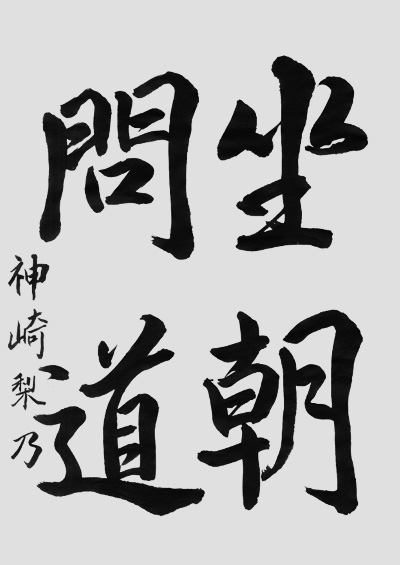 坐朝
問道
神崎梨乃